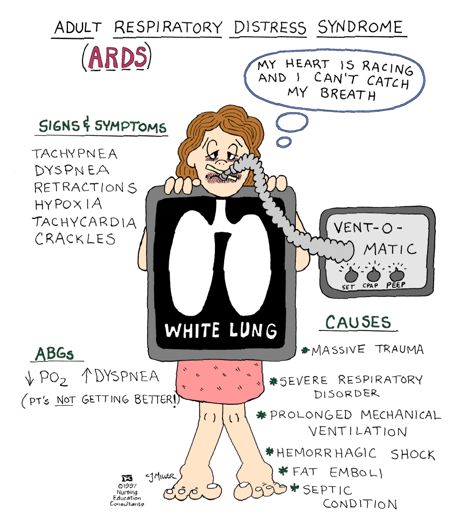 ADULT RESPIRATORY DISTRESS SYNDROME
(ARDS)
MY HEART IS RACING
AND I CAN'T CATCH
MY BREATH
SIGNS & SYMPTOMS
TACHYPNEA
DYSPNEA
RETRACTIONS
HYPOXIA
TACHYCARDIA
CRACKLES
VENT-O-
MATIC
SET CPAP PEEP
WHITE LUNG
ABGs
↓ PO2 ↑ DYSPNEA
(PT'S NOT GETTING BETTER!)
CAUSES
* MASSIVE TRAUMA
* SEVERE RESPIRATORY
DISORDER
* PROLONGED MECHANICAL
VENTILATION
* HEMORRHAGIC SHOCK
* FAT EMBOLI
* SEPTIC
CONDITION
CJMILLER
©1997
Nursing
Education
Consultants